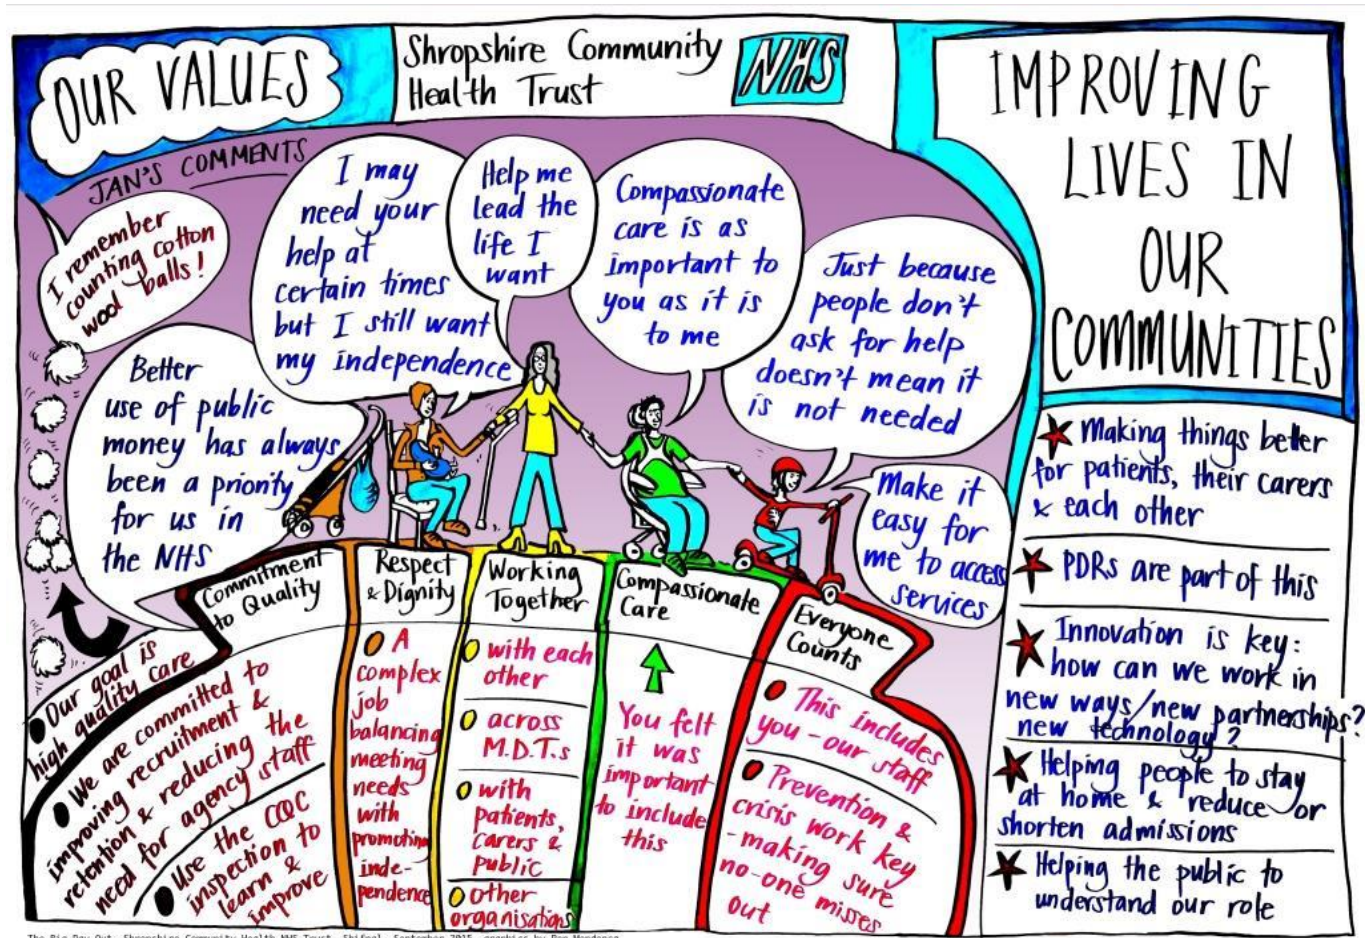 OUR VALUES
Shropshire Community
Health Trust
NHS
JAN'S COMMENTS
I remember
counting cotton
wool balls!
Better
use of public
money has always
been a priority
for us in
the NHS
I may
need your
help at
certain times
but I still want
my independence
Help me
lead the
life I
want
Compassionate
care is as
important to
you as it is
to me
Just because
people don't
ask for help
doesn't mean it
is not needed
Make it
easy for
me to access
services
Commitment
to Quality
Our goal is
high quality care
We are committed to
improving recruitment &
retention & reducing the
need for agency staff
Use the CQC
inspection to
learn &
improve
Respect
& Dignity
A
complex
job
balancing
meeting
needs
with
promoting
inde-
pendence
Working
Together
with each
other
across
M.D.T.s
with
patients,
carers &
public
other
organisations
Compassionate
Care
You felt
it was
important
to include
this
Everyone
Counts
This includes
you - our staff
Prevention &
crisis work key
- making sure
no-one misses
out
IMPROVING
LIVES IN
OUR
COMMUNITIES
Making things better
for patients, their carers
& each other
PDRs are part of this
Innovation is key:
how can we work in
new ways/new partnerships?
new technology?
Helping people to stay
at home & reduce or
shorten admissions
Helping the public to
understand our role